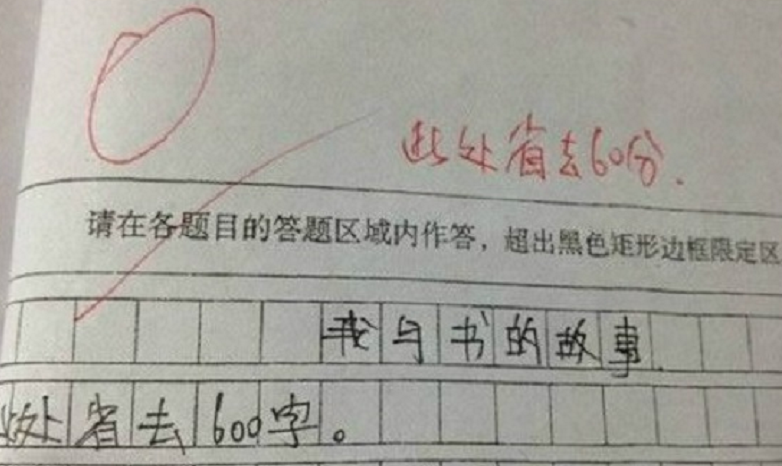 0
此处省去60分.
请在各题目的答题区域内作答，超出黑色矩形边框限定区
我与书的故事
此处省去600字。